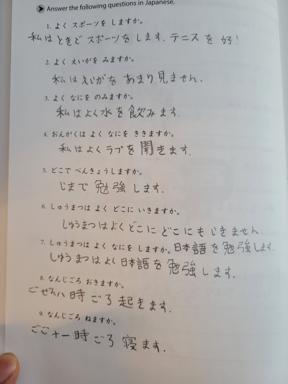 Answer the following questions in Japanese.
1. よく スポーツを しますか。
私は ときどき スポーツを します。テニス を 好!
2. よく えいがを みますか。
私は えいがを あまり 見ません。
3. よく なにを のみますか。
私は よく 水を 飲みます
4. おんがくは よく なにを ききますか。
私は よく ラブを 聞きます。
5. どこで べんきょうしますか。
じまで 勉強します。
6. しゅうまつは よく どこに いきますか。
しゅうまつはよくどこに どこにも いきません。
7. しゅうまつは よく なにを しますか。日本語を勉強します
しゅうまつは よく 日本語を 勉強します。
8. なんじごろ おきますか。
ごぜん八時ごろ起きます。
9. なんじごろ ねますか。
ごご十一時ごろ寝ます。